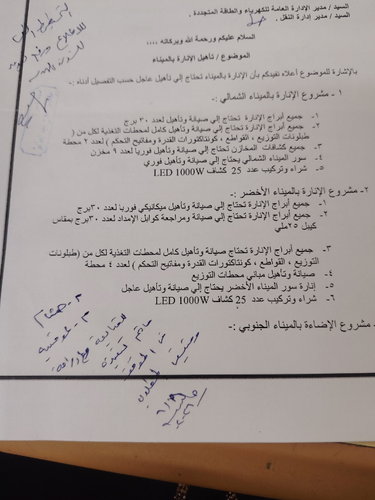 السيد / مدير الإدارة العامة للكهرباء والطاقة المتجددة .
السيد / مدير إدارة النقل .
السلام عليكم ورحمة الله وبركاته ،،،،
الموضوع / تأهيل الإنارة بالميناء
بالإشارة للموضوع أعلاه نفيدكم بأن الإنارة بالميناء تحتاج إلي تأهيل عاجل حسب التفصيل أدناه :-
١ - مشروع الإنارة بالميناء الشمالي :-
١- جميع أبراج الإنارة تحتاج إلي صيانة وتأهيل لعدد ٣٠ برج
٢- جميع أبراج الإنارة تحتاج صيانة وتأهيل كامل لمحطات التغذية لكل من (
طبلونات التوزيع ، القواطع ، كونتاكتورات القدرة ومفاتيح التحكم ) لعدد ٢ محطة
٣- جميع كشافات المخازن تحتاج إلي صيانة وتأهيل فوريا لعدد ٦ مخازن
٤- سور الميناء الشمالي يحتاج إلي صيانة وتأهيل فوري
٥- شراء وتركيب عدد 25 كشاف LED 1000W
٢- مشروع الإنارة بالميناء الأخضر :-
١- جميع أبراج الإنارة تحتاج إلي صيانة وتأهيل ميكانيكي فوريا لعدد ٣٠برج
٢- جميع أبراج الإنارة تحتاج إلي صيانة ومراجعة كوابل الإمداد لعدد ٣٠برج بمقاس
كيبل ٢٥ملي
٣- جميع أبراج الإنارة تحتاج صيانة وتأهيل كامل لمحطات التغذية لكل من (طبلونات
التوزيع ، القواطع ، كونتاكتورات القدرة ومفاتيح التحكم ) لعدد ٤ محطة
٤- صيانة وتأهيل مباني محطات التوزيع
٥- إنارة سور الميناء الأخضر يحتاج إلي صيانة وتأهيل عاجل
٦- شراء وتركيب عدد 25 كشاف LED 1000W
مشروع الإضاءة بالميناء الجنوبي :-